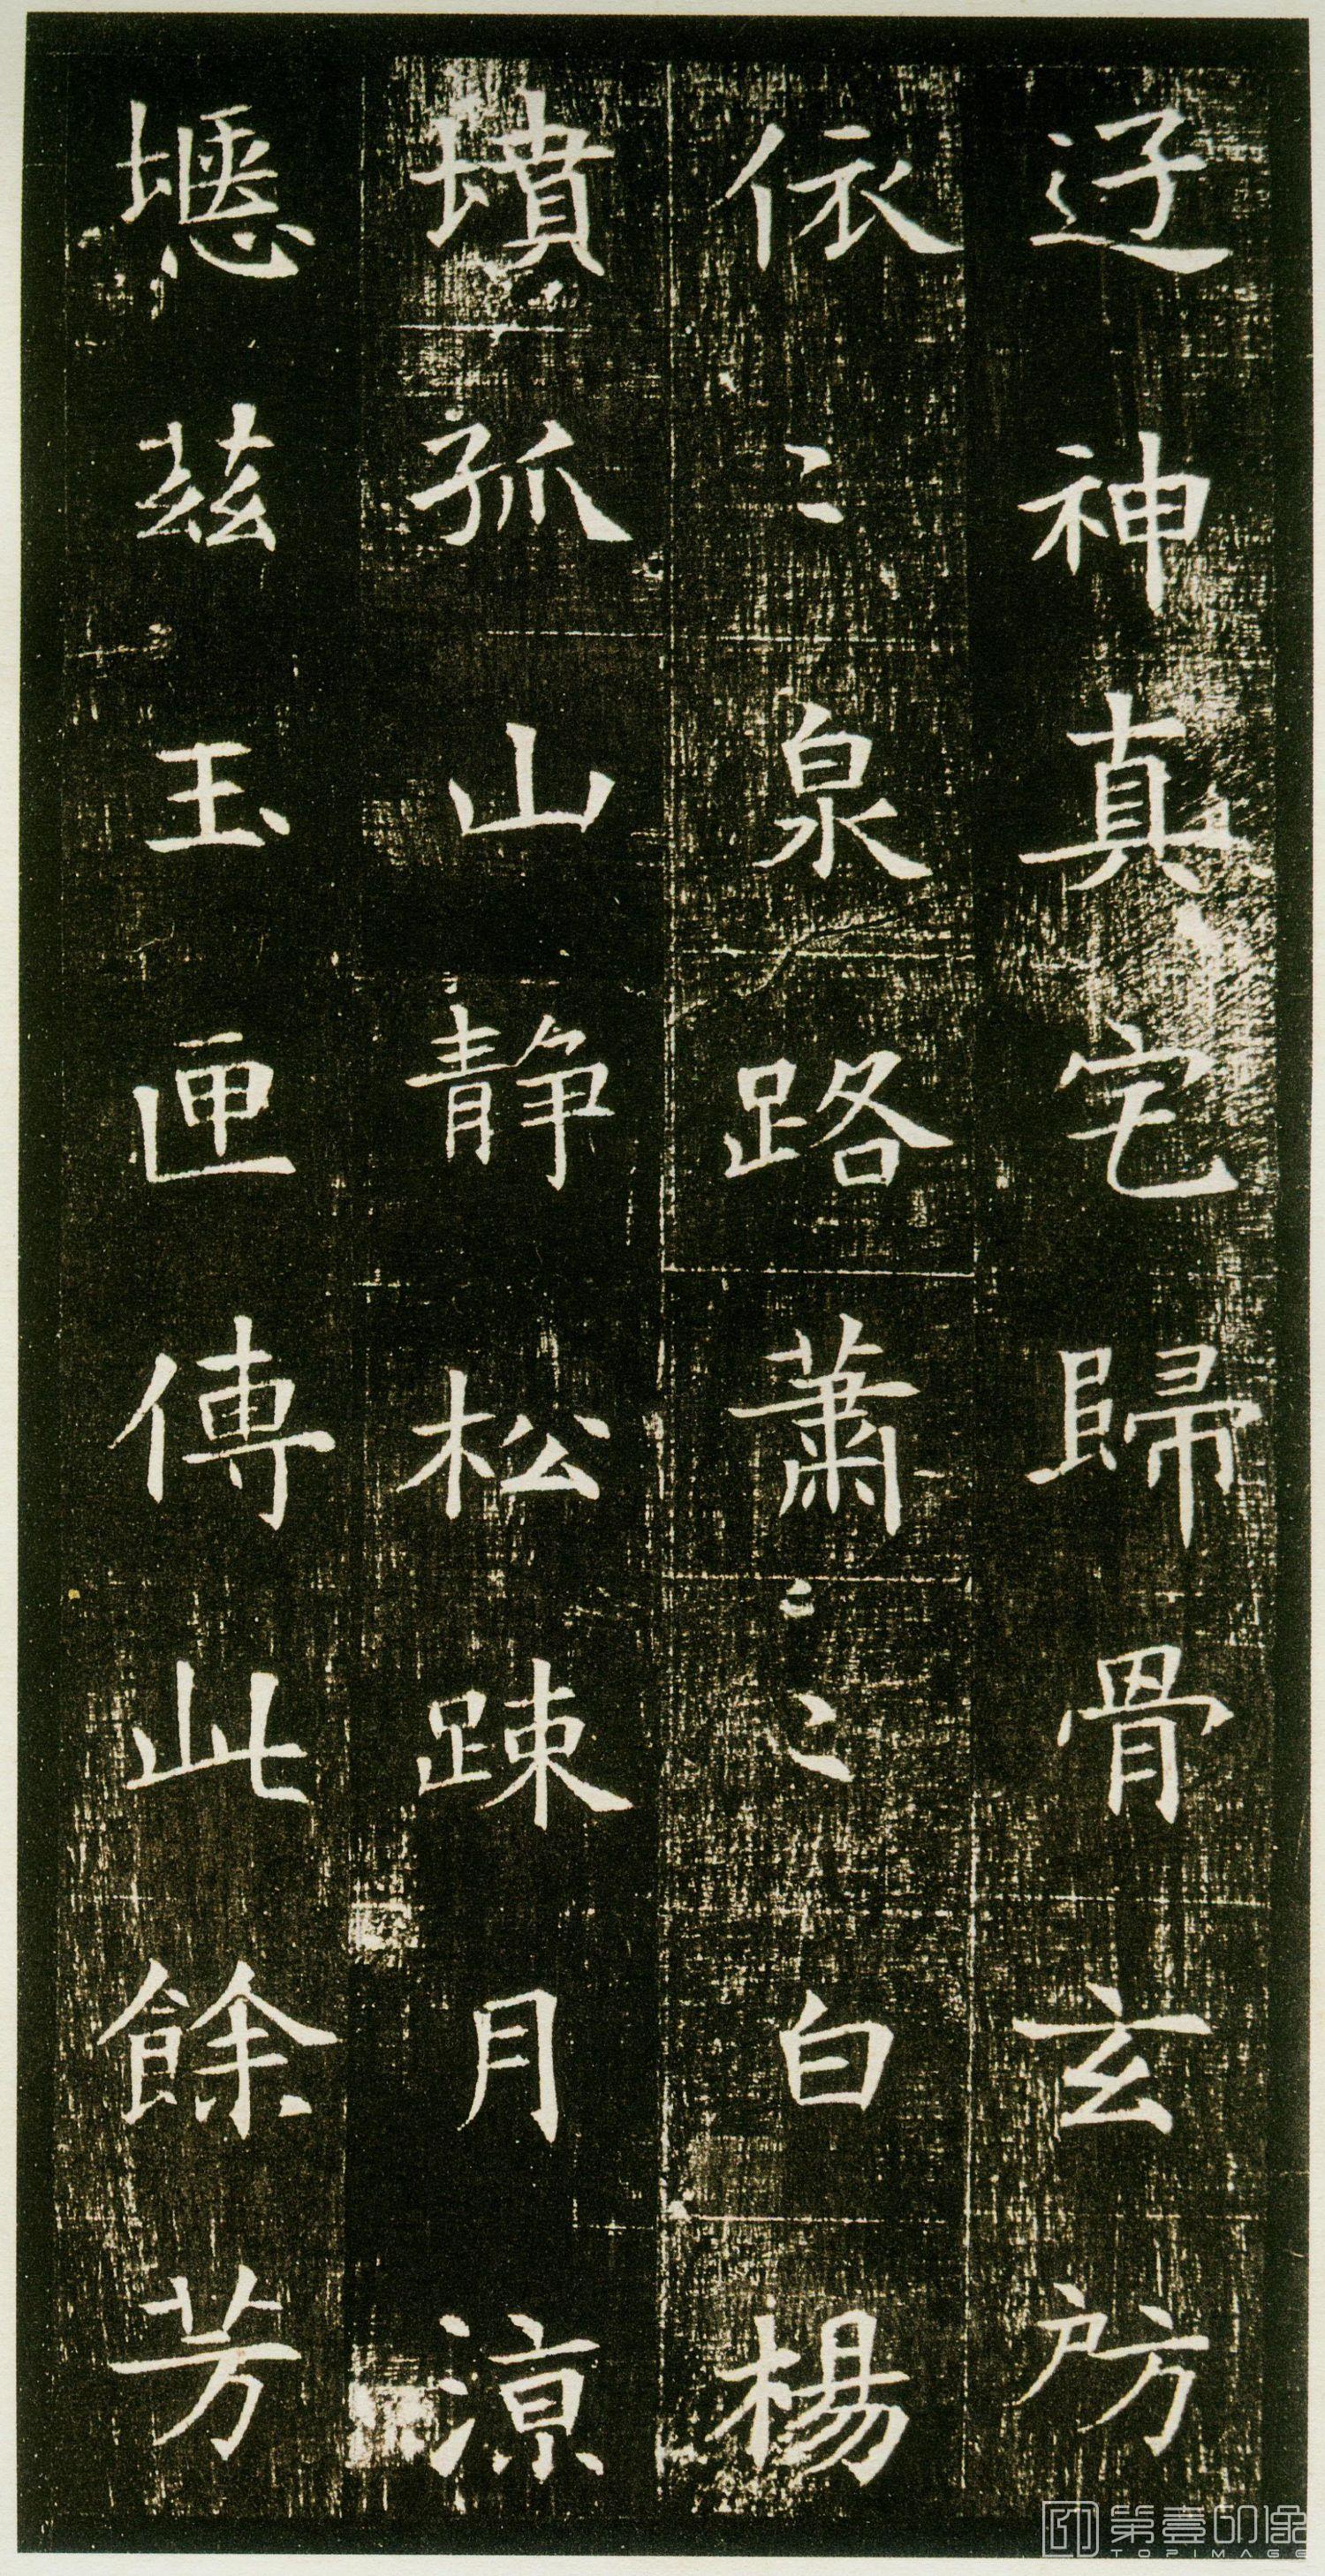 辽神真宅歸骨玄房
依〻泉路蕭〻〻白楊
墳孤山静松踈月涼
堰茲玉匣傳此餘芳
第壹印像
TOPIMAGE